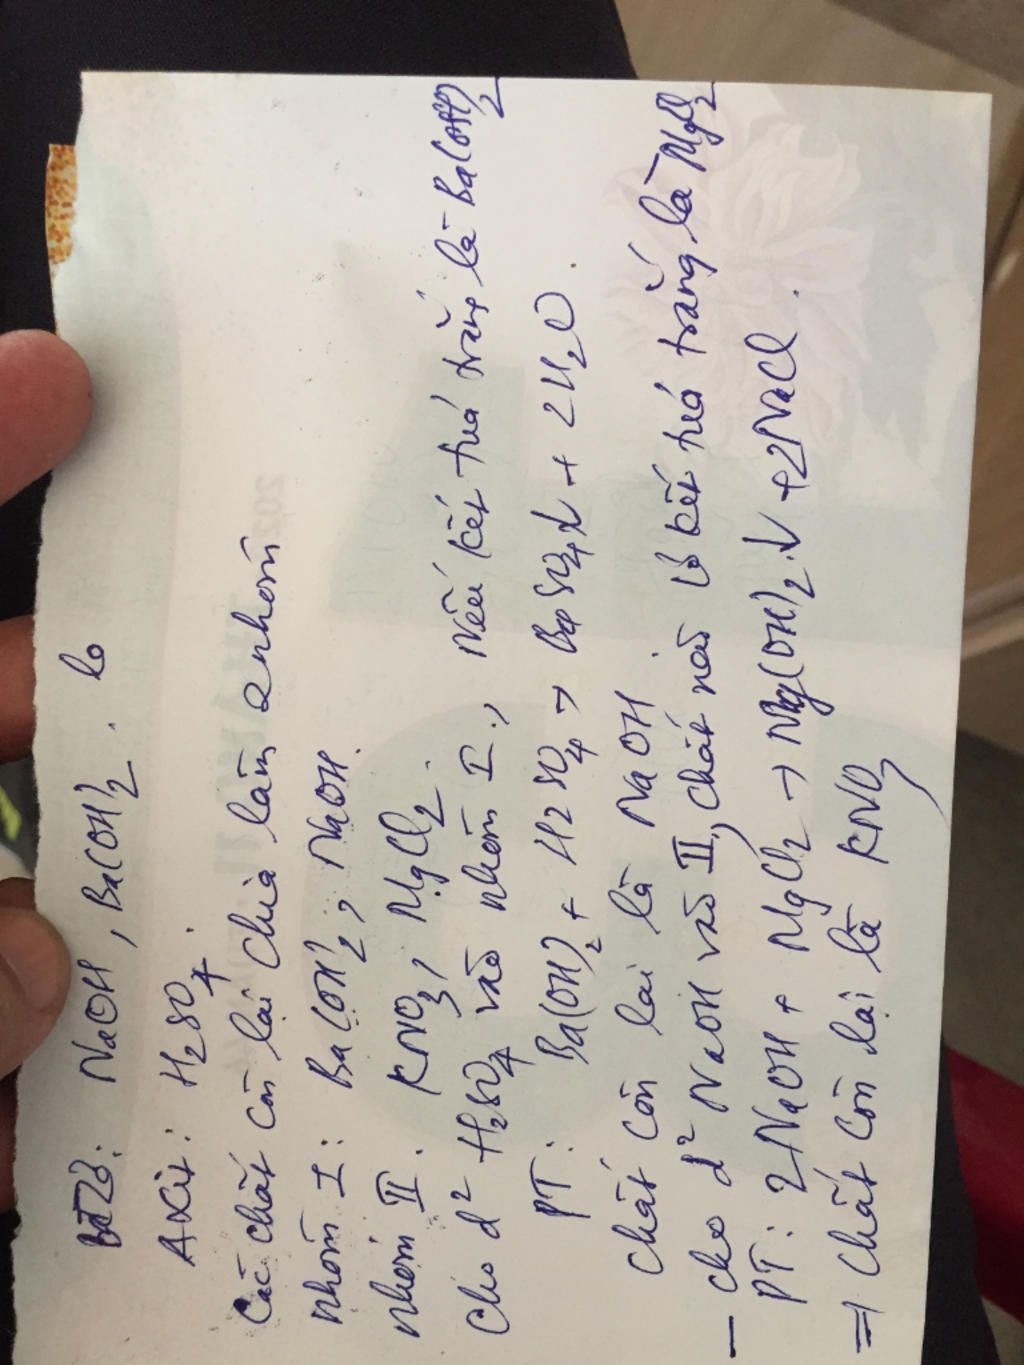 Bazơ: NaOH, Ba(OH)2. có
Axit: H2SO4.
Các chất còn lại chia làm 2 nhóm
Nhóm I: Ba(OH)2, NaOH.
Nhóm II. KNO3, MgCl2.
Cho d² H2SO4 vào nhóm I, Nếu kết tuả trắng là Ba(OH)2
PT: Ba(OH)2 + H2SO4 → BaSO4↓ + 2H2O.
Chất còn lại là NaOH
– cho d² NaOH vào II, chất nào có kết tuả trắng là MgCl2
PT: 2NaOH + MgCl2 → Mg(OH)2↓ + 2NaCl.
⇒ Chất còn lại là KNO3